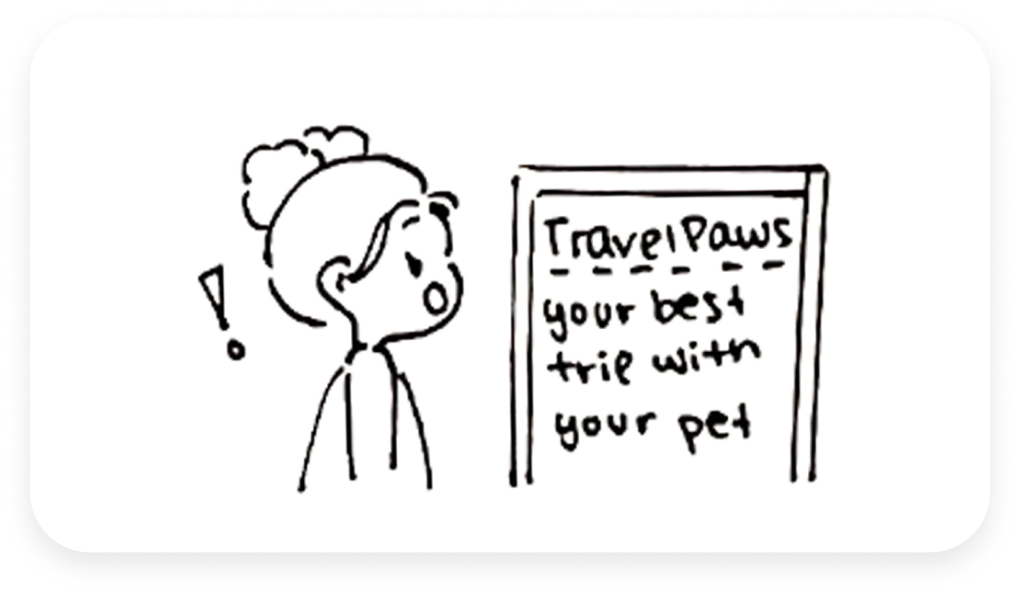 TravelPaws
your best
trip with
your pet
!